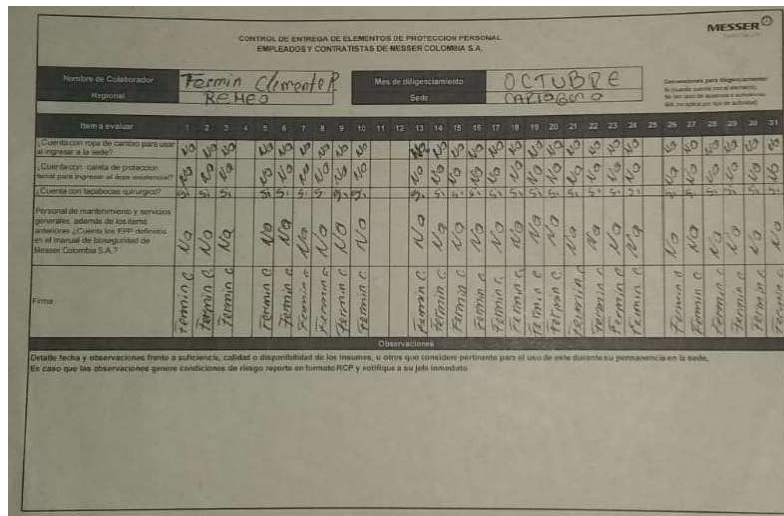 MESSER
CONTROL DE ENTREGA DE ELEMENTOS DE PROTECCION PERSONAL
EMPLEADOS Y CONTRATISTAS DE MESSER COLOMBIA S.A.
Nombre de Colaborador Fermin Clemente R Mes de diligenciamiento OCTUBRE
Regional REMEO Sede CARTAGENA
Item a evaluar 1 2 3 4 5 6 7 8 9 10 11 12 13 14 15 16 17 18 19 20 21 22 23 24 25 26 27 28 29 30 31
¿Cuenta con ropa de cambio para usar
al ingresar a la sede? No No No No No No No No No No No No No No No No No No No No No No No No No No No
¿Cuenta con careta de protección
facial para ingresar al área asistencial? No No No No No No No No No No No No No No No No No No No No No No No No No No No
¿Cuenta con tapabocas quirurgico? Si Si Si Si Si Si Si Si Si Si Si Si Si Si Si Si Si Si Si Si Si Si Si Si Si Si Si
Personal de mantenimiento y servicios
generales, además de los items
anteriores ¿Cuenta los EPP definidos
en el manual de bioseguridad de
Messer Colombia S.A.? No No No No No No No No No No No No No No No No No No No No No No No No No No No
Firma Fermin C Fermin C Fermin C Fermin C Fermin C Fermin C Fermin C Fermin C Fermin C Fermin C Fermin C Fermin C Fermin C Fermin C Fermin C Fermin C Fermin C Fermin C Fermin C Fermin C Fermin C Fermin C Fermin C Fermin C Fermin C Fermin C Fermin C
Observaciones
Detalle fecha y observaciones frente a suficiencia, calidad o disponibilidad de los insumos, u otros que considere pertinente para el uso de este durante su permanencia en la sede,
Es caso que las observaciones genere condiciones de riesgo reporte en formato RCP y notifique a su jefe inmediato